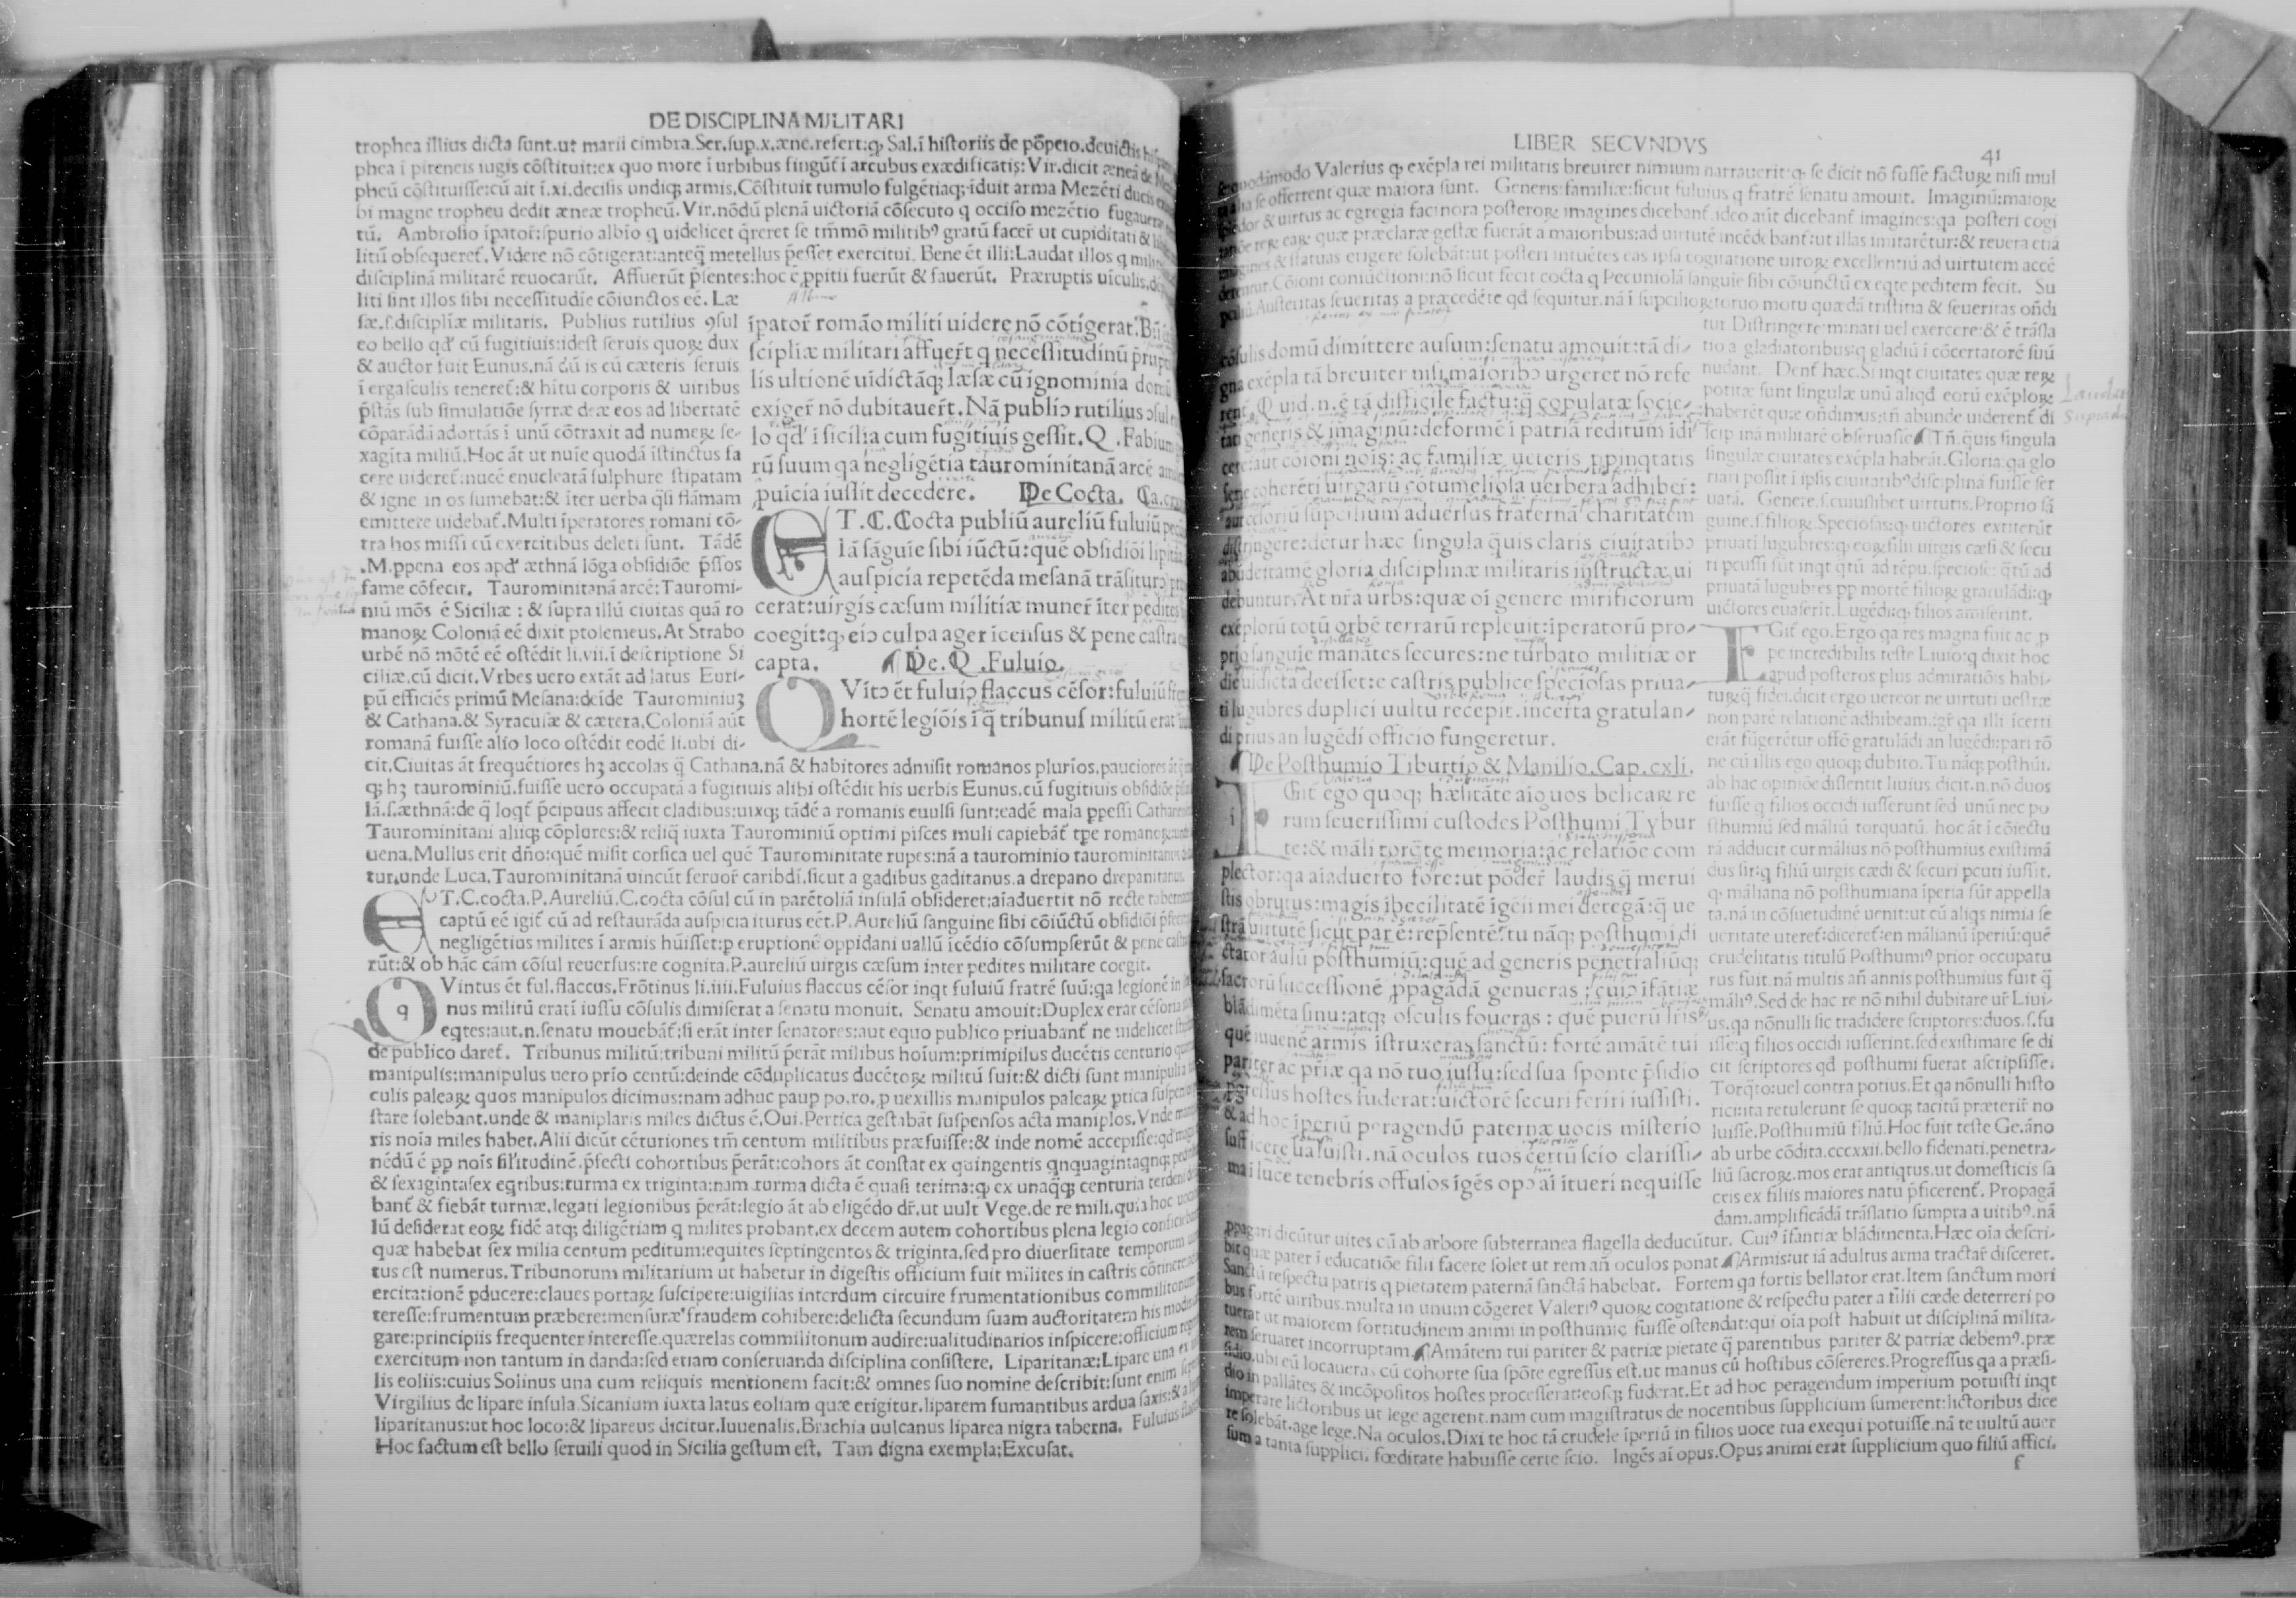 DE DISCIPLINA MILITARI
trophea illius dicta sunt.ut marii cimbra.Ser.sup.x.æne.refert:ꝙ Sal.ĩ historiis de põpeio.deuictis
phea ĩ pireneis iugis cõstituit:ex quo more ĩ urbibus singuł ĩ arcubus exædificatis:Vir.dicit æneã de
pheũ cõstituisse:cũ ait ĩ.xi.decisis undiqȝ armis.Cõstituit tumulo fulgẽtiaqȝ:ĩduit arma Mezẽti ducis
bi magne tropheu dedit æneæ tropheũ.Vir.nõdũ plenã uictoriã cõsecuto q occiso mezẽtio fugauerat
tũ. Ambrosio ĩpatoř:spurio albĩo q uidelicet q̃reret se tm̃mõ militibꝰ gratũ faceř ut cupiditati &
litũ obsequereť.Videre nõ cõtigerat:anteq̃ metellus p̃esset exercitui. Bene ẽt illi:Laudat illos q
disciplinã militarẽ reuocarũt. Affuerũt p̃sentes:hoc ẽ ꝓpitii fuerũt & fauerũt. Præruptis uĩculis.
liti sint illos sibi necessitudĩe cõiunctos eẽ. Læ
sæ.s.disciplĩæ militaris. Publius rutilius ꝯsul
eo bello qď cũ fugitiuis:idest seruis quoꝝ dux
& auctor fuit Eunus.nã cũ is cũ cæteris seruis
ĩ ergasculis tenereť:& hĩtu corporis & uiribus
p̃stãs sub simulatiõe syrræ deæ eos ad libertatẽ
cõparãdã adortãs ĩ unũ cõtraxit ad numeꝝ se-
xagĩta miliũ.Hoc ãt ut nuĩe quodã ĩstinctus fa
cere uidereť:nucẽ enucleatã sulphure stipatam
& igne in os sumebat:& ĩter uerba q̃si flãmam
emittere uidebať.Multi ĩperatores romani cõ-
tra hos missi cũ exercitibus deleti sunt. Tãdẽ
.M.ꝑpena eos apď æthnã lõga obsidiõe p̃ssos
fame cõfecit. Taurominitanã arcẽ:Tauromi-
niũ mõs ẽ Siciliæ : & supra illũ ciuitas quã ro
manoꝝ Coloniã eẽ dixit ptolemeus.At Strabo
urbẽ nõ mõtẽ eẽ ostẽdit li.vii.ĩ descriptione Si
ciliæ.cũ dicit.Vrbes uero extãt ad latus Euri-
pũ efficiẽs primũ Mesana:deĩde Taurominiuȝ
& Cathana.& Syracusæ & cætera.Coloniã aũt
romanã fuisse alio loco ostẽdit eodẽ li.ubi di-
ĩpatoř romão militi uidere nõ cõtigerat.
scipliæ militari affueřt q necessitudinũ
lis ultionẽ uĩdictãqȝ læsæ cũ ignominia
exigeř nõ dubitaueřt.Nã publiꝰ rutilius
lo qď ĩ sicilia cum fugitiuis gessit.Q .Fabium
rũ suum qa negligẽtia taurominitanã arcẽ
puicia iussit decedere. De Cocta.
ET.C.Cocta publiũ aureliũ fuluiũ
lã sãguĩe sibi iũctũ:quẽ obsidiõi
auspicia repetẽda mesanã trãsiturꝰ
cerat:uirgis cæsum militiæ muneř ĩter pedites
coegit:ꝙ eiꝰ culpa ager ĩcensus & pene castra
capta. De.Q .Fuluio.
QVĩtꝰ ẽt fuluiꝰ flaccus cẽsor:fuluiũ
hortẽ legiõis ĩ q̃ tribunus militũ erat
cit.Ciuitas ãt frequẽtiores hȝ accolas q̃ Cathana.nã & habitores admisit romanos plurios.pauciores
qȝ hȝ taurominiũ.fuisse uero occupatã a fugitiuis alibi ostẽdit his uerbis Eunus.cũ fugitiuis obsidiõe
lã.s.æthnã:de q̃ loqť p̃cipuus affecit cladibus:uixqȝ tãdẽ a romanis euulsi sunt:eadẽ mala ꝑpessi
Taurominitani aliiqȝ cõplures:& reliq̃ iuxta Taurominiũ optimi pisces muli capiebãť tꝑe
uena.Mullus erit dño:quẽ misit corsica uel quẽ Taurominitate rupes:nã a taurominio
tur.unde Luca.Taurominitanã uincũt feruoř caribdĩ.sicut a gadibus gaditanus.a drepano drepanitanus.
ET.C.cocta.P.Aureliũ.C.cocta cõsul cũ in parẽtoliã insulã obsideret:aĩaduertit nõ recte
captũ eẽ igiť cũ ad restaurãda auspicia iturus eẽt.P.Aureliũ sanguine sibi cõiũctũ obsidiõi
negligẽtius milites ĩ armis hũisset:p eruptionẽ oppidani uallũ ĩcẽdio cõsumpserũt & pene
rũt:& ob hãc cãm cõsul reuersus:re cognita.P.aureliũ uirgis cæsum inter pedites militare coegit.
q
QVintus ẽt ful.flaccus.Frõtinus li.iiii.Fuluius flaccus cẽsor inqt fuluiũ fratrẽ suũ:qa legionẽ in
nus militũ erat ĩ iussu cõsulis dimiserat a senatu monuit. Senatu amouit:Duplex erat
eqtes:aut.n.senatu mouebãť:si erãt inter senatores:aut equo publico priuabanť ne uidelicet
de publico dareť. Tribunus militũ:tribuni militũ p̃erãt milibus hoĩum:primipilus ducẽtis centurio
manipulis:manipulus uero prĩo centũ:deinde cõduplicatus ducẽtoꝝ militũ fuit:& dicti sunt manipula
culis paleaꝝ quos manipulos dicimus:nam adhuc paup po.ro.p uexillis manipulos paleaꝝ ptica
stare solebant.unde & maniplaris miles dictus ẽ.Oui.Pertica gestabãt suspensos acta maniplos.
ris noĩa miles habet.Alii dicũt cẽturiones tm̃ centum militibus præfuisse:& inde nomẽ accepisse:
nẽdũ ẽ pp nois sil'itudinẽ.p̃fecti cohortibus p̃erãt:cohors ãt constat ex quingentis qnquagintaqnqȝ
& sexagintasex eqtibus:turma ex triginta:nam turma dicta ẽ quasi terima:ꝙ ex unaqq̃ȝ centuria
banť & fiebãt turmæ.legati legionibus p̃erãt:legio ãt ab eligẽdo dř.ut uult Vege.de re mili.quia hoc
lũ desiderat eoꝝ fidẽ atqȝ diligẽtiam q milites probant.ex decem autem cohortibus plena legio
quæ habebat sex milia centum peditum:equites septingentos & triginta.sed pro diuersitate temporum
tus est numerus.Tribunorum militarium ut habetur in digestis officium fuit milites in castris
ercitationẽ pducere:claues portaꝝ suscipere:uigilias interdum circuire frumentationibus
teresse:frumentum præbere:mensuræ fraudem cohibere:delicta secundum suam auctoritatem his
gare:principiis frequenter interesse.quærelas commilitonum audire:ualitudinarios inspicere:officium
exercitum non tantum in danda:sed etiam conseruanda disciplina consistere. Liparitanæ:Lipare una ex
lis eoliis:cuius Solinus una cum reliquis mentionem facit:& omnes suo nomine describit:sunt enim
Virgilius de lipare insula.Sicanium iuxta latus eoliam quæ erigitur.liparem fumantibus ardua saxis:
liparitanus:ut hoc loco:& lipareus dicitur.Iuuenalis.Brachia uulcanus liparea nigra taberna. Fuluius
Hoc factum est bello seruili quod in Sicilia gestum est. Tam digna exempla:Excusat.
LIBER SECVNDVS
41
Valerius ꝙ exẽpla rei militaris breuirer nimium narrauerit:ꝙ se dicit nõ fuisse factuꝝ nisi mul
se offerrent quæ maiora sunt. Generis:familiæ:sicut fuluius q fratrẽ senatu amouit. Imaginũ:maioꝝ
& uirtus ac egregia facinora posteroꝝ imagines dicebanť.ideo aũt dicebanť imagines:qa posteri cogi
reꝝ eaꝝ quæ præclaræ gestæ fuerãt a maioribus:ad uirtutẽ incẽdebanť:ut illas imitarẽtur:& reuera etiã
& statuas erigere solebãt:ut posteri intuẽtes eas ipsa cogitatione uiroꝝ excellentiũ ad uirtutem accẽ
Cõioni coniũctioni:nõ sicut fecit cocta q Pecuniolã sanguĩe sibi cõiunctũ ex eqte peditem fecit. Su
Austeritas seueritas a præcedẽte qd sequitur.nã ĩ supcilioꝝ toruo motu quædã tristitia & seueritas oñdi
tur.Distringere:minari uel exercere:& ẽ trãsla
tio a gladiatoribus:q gladiũ ĩ cõcertatorẽ suũ
nudant. Denť hæc.Si inqt ciuitates quæ reꝝ
potitæ sunt singulæ unũ aliqd eorũ exẽploꝝ
haberẽt quæ oñdimus:tñ abunde uiderenť di
scip inã militarẽ obseruasse Tñ.q̃uis singula
singulæ ciuitates exẽpla habeãt.Gloria:qa glo
riari possit ĩ ipsis ciuitatibꝰ disciplinã fuisse ser
uatã. Genere.s.cuiuslibet uirtutis.Proprio sã
guine.s.filioꝝ.Speciosas:ꝙ uictores extiterũt
priuati lugubres:ꝙ eoꝝ filii uirgis cæsi & secu
ri pcussi sũt inqt q̃tũ ad rẽpu.speciose: q̃tũ ad
priuatã lugubres pp mortẽ filioꝝ gratulãdi:ꝙ
uictores euaserĩt.Lugẽdi:ꝙ filios amiserint.
cõsulis domũ dimittere ausum:senatu amouit:tã di-
gna exẽpla tã breuiter nisi maioribꝰ urgeret nõ refe
renť.Quid.n.ẽ tã difficile factu:q̃ copulatæ socie-
tati generis & imaginũ:deformẽ ĩ patriã reditum ĩdi
cere:aut cõioni nois: ac familiæ ueteris ꝓpinqtatis
serie cohærẽti uirgarũ cõtumeliosa uerbera adhiberi:
aut cẽsoriũ supcilium aduersus fraternã charitatem
distringere:dẽtur hæc singula q̃uis claris ciuitatibꝰ
abũde:tamẽ gloria disciplinæ militaris instructæ ui
debuntur.At nr̃a urbs:quæ oĩ genere mirificorum
exẽplorũ totũ orbẽ terrarũ repleuit:ĩperatorũ pro-
prio sanguĩe manãtes secures:ne turbato militiæ or
die uĩdicta deesset:e castris publice speciosas priua-
ti lugubres duplici uultu recepit.incerta gratulan-
di prius an lugẽdi officio fungeretur.
De Posthumio Tiburtio & Manilio.Cap.cxli.
i
IGiť ego quoqȝ hæsitãte aĩo uos belicaꝝ re
rum seuerissimi custodes Posthumi Tybur
te:& mãli torq̃te memoria:ac relatiõe com
plector:qa aĩaduerto fore:ut põdeř laudis q̃ merui
stis obrutus:magis ĩbecilitatẽ ĩgẽii mei detegã:q̃ ue
strã uirtutẽ sicut par ẽ:rep̃sentẽ.tu nãqȝ posthumi di
ctator aulũ posthumiũ:quẽ ad generis penetraliũqȝ
sacrorũ successionẽ ꝓpagãdã genueras : cuiꝰ ĩfãtiæ
blãdimẽta sinu:atqȝ osculis foueras : quẽ puerũ lr̃is
quẽ iuuenẽ armis ĩstruxeras sanctũ: fortẽ amãtẽ tui
pariter ac p̃riæ qa nõ tuo iussu:sed sua sponte p̃sidio
ꝓgressus hostes fuderat:uictorẽ securi feriri iussisti.
& ad hoc ĩperiũ peragendũ paternæ uocis misterio
sufficere ualuisti.nã oculos tuos certũ scio clarissi-
mai luce tenebris offusos ĩgẽs opꝰ aĩ ĩtueri nequisse
IGiť ego.Ergo qa res magna fuit ac p
pe incredibilis teste Liuio:q dixit hoc
apud posteros plus admiratiõis habi-
tuꝝ q̃ fidei.dicit ergo uereor ne uirtuti uestræ
non parẽ relationẽ adhibeam:igř qa illi ĩcerti
erãt fũgerẽtur offõ gratulãdi an lugẽdi:pari rõ
ne cũ illis ego quoqȝ dubito.Tu nãqȝ posthũi.
ab hac opiniõe dissentit liuius dicit.n.nõ duos
fuisse q filios occidi iusserunt sed unũ nec po
sthumiũ sed mãliũ torquatũ. hoc ãt ĩ cõiectu
rã adducit cur mãlius nõ posthumius existimã
dus sit:q filiũ uirgis cædi & securi pcuti iussit.
ꝙ mãliana nõ posthumiana ĩperia sũt appella
ta.nã in cõsuetudinẽ uenit:ut cũ aliqs nimia se
ueritate utereť:dicereť:en mãlianũ ĩperiũ:quẽ
crudelitatis titulũ Posthumiꝰ prior occupatu
rus fuit.nã multis añ annis posthumius fuit q̃
mãliꝰ.Sed de hac re nõ nihil dubitare uř Liui-
us.qa nõnulli sic tradidere scriptores:duos.s.fu
isse:q filios occidi iusserint.sed existimare se di
cit scriptores qd posthumi fuerat ascripsisse.
Torq̃to:uel contra potius.Et qa nõnulli histo
rici:ita retulerunt se quoqȝ tacitũ præteriř no
luisse.Posthumiũ filiũ.Hoc fuit teste Ge.ãno
ab urbe cõdita.cccxxii.bello fidenati.penetra-
liũ sacroꝝ.mos erat antiqtus.ut domesticis sa
cris ex filiis maiores natu p̃ficerenť. Propagã
dam.amplificãdã trãslatio sumpta a uitibꝰ.nã
ꝓpagari dicũtur uites cũ ab arbore subterranea flagella deducũtur. Cuiꝰ ĩfantiæ blãdimenta.Hæc oĩa descri-
bit quæ pater ĩ educatiõe filii facere solet ut rem añ oculos ponat Armis:ut iã adultus arma tractař disceret.
Sanctũ respectu patris q pietatem paternã sanctã habebat. Fortem qa fortis bellator erat.Item sanctum mori
bus fortẽ uiribus.multa in unum cõgeret Valeriꝰ quoꝝ cogitatione & respectu pater a filii cæde deterreri po
tuerat ut maiorem fortitudinem animi in posthumio fuisse ostendat:qui oĩa post habuit ut disciplinã milita-
rem seruaret incorruptam. Amãtem tui pariter & patriæ pietate q̃ parentibus pariter & patriæ debemꝰ.præ
sidio.ubi eũ locaueras cũ cohorte sua spõte egressus est.ut manus cũ hostibus cõsereres.Progressus qa a præsi-
dio in pallãtes & incõpositos hostes processerat:eosqȝ fuderat.Et ad hoc peragendum imperium potuisti inqt
imperare lictoribus ut lege agerent.nam cum magistratus de nocentibus supplicium sumerent:lictoribus dice
re solebãt.age lege.Na oculos.Dixi te hoc tã crudele ĩperiũ in filios uoce tua exequi potuisse.nã te uultũ auer
sum a tanta supplici. fœditate habuisse certe scio. Ingẽs aĩ opus.Opus animi erat supplicium quo filiũ affici.
f